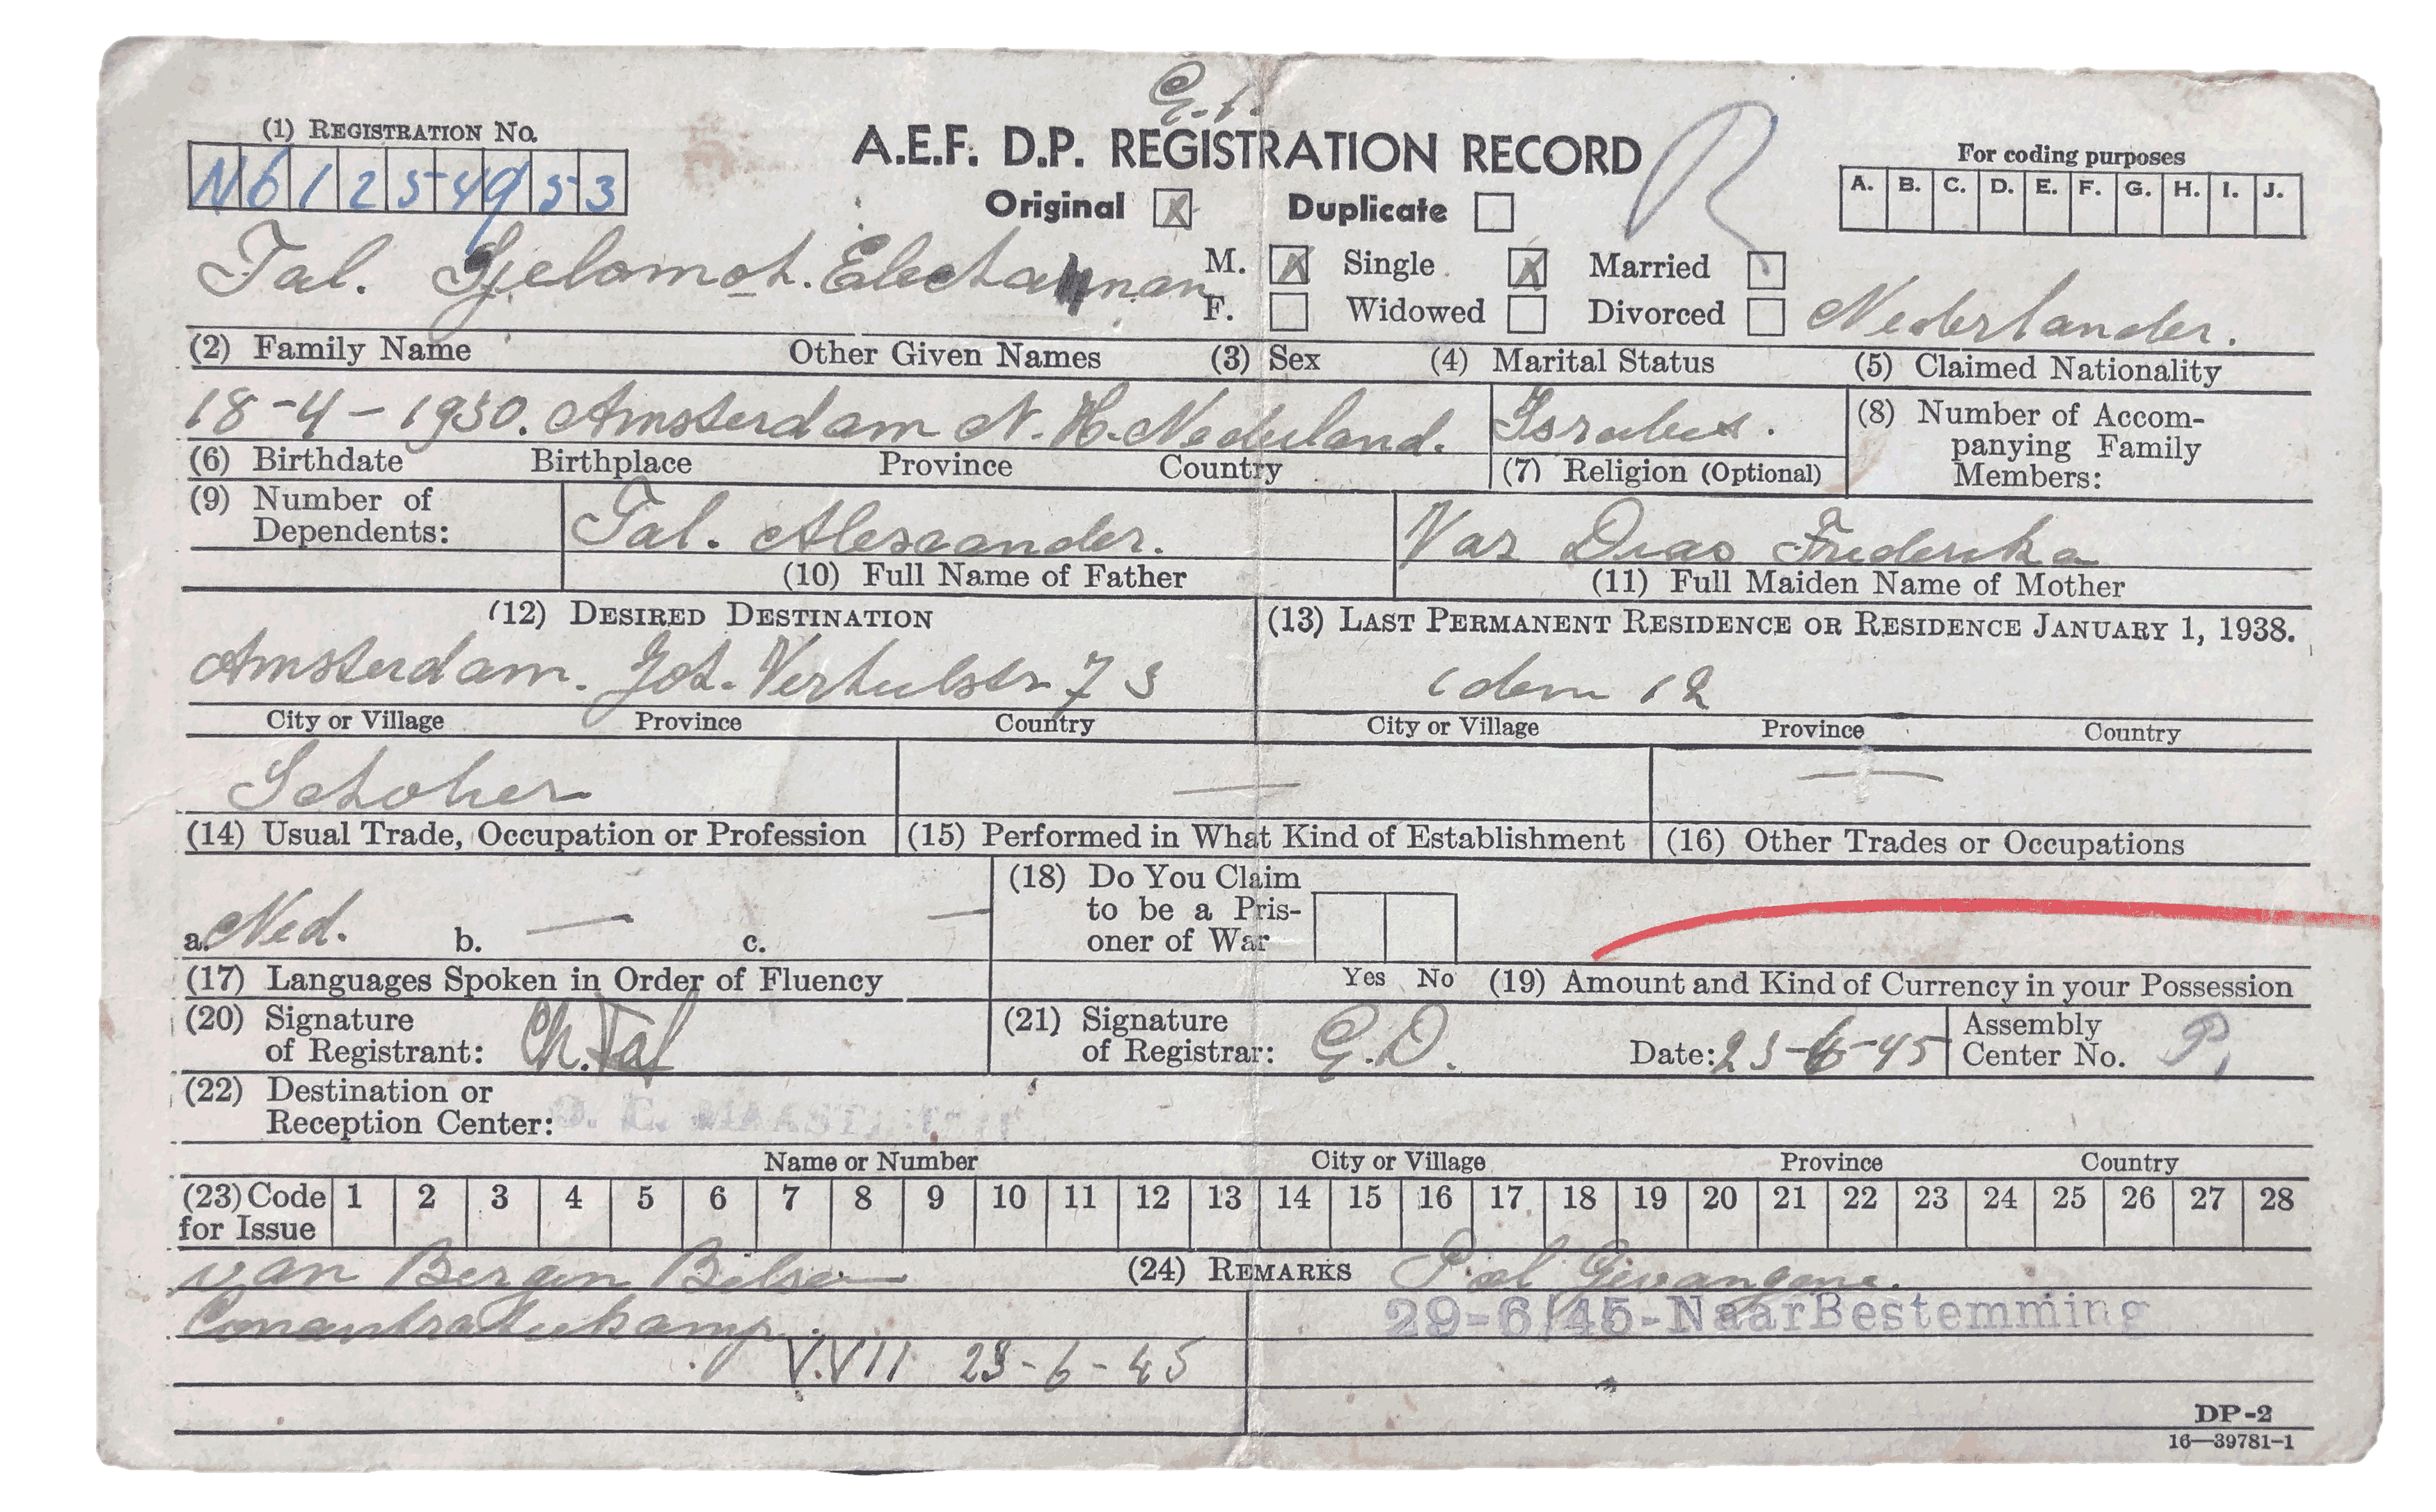 G. 1.
(1) REGISTRATION NO.
N61254953
A.E.F. D.P. REGISTRATION RECORD
Original X Duplicate
For coding purposes
A. B. C. D. E. F. G. H. I. J.
Tal. Sjelomoh. Elechanan
M. X Single X Married
F. Widowed Divorced
Nederlander.
(2) Family Name Other Given Names (3) Sex (4) Marital Status (5) Claimed Nationality
18-4-1930. Amsterdam N. H. Nederland.
(6) Birthdate Birthplace Province Country
(7) Religion (Optional)
(8) Number of Accom-
panying Family
Members:
(9) Number of
Dependents:
Tal. Alexander.
(10) Full Name of Father
Vaz Dias Frederika
(11) Full Maiden Name of Mother
(12) DESIRED DESTINATION
(13) LAST PERMANENT RESIDENCE OR RESIDENCE JANUARY 1, 1938.
Amsterdam. Joh. Verhulstr 73
idem 12
City or Village Province Country
City or Village Province Country
Scholier
(14) Usual Trade, Occupation or Profession
—
(15) Performed in What Kind of Establishment
—
(16) Other Trades or Occupations
a. Ned. b. — c. —
(17) Languages Spoken in Order of Fluency
(18) Do You Claim
to be a Pris-
oner of War
Yes No
(19) Amount and Kind of Currency in your Possession
(20) Signature
of Registrant: Ch. Tal
(21) Signature
of Registrar: G.D.
Date: 23-6-45
Assembly
Center No. P.
(22) Destination or
Reception Center:
Name or Number City or Village Province Country
(23) Code
for Issue
1 2 3 4 5 6 7 8 9 10 11 12 13 14 15 16 17 18 19 20 21 22 23 24 25 26 27 28
van Bergen Belsen
(24) REMARKS
Pol Gevangene.
29-6/45-NaarBestemming
V.VII 23-6-45
DP-2
16—39781-1